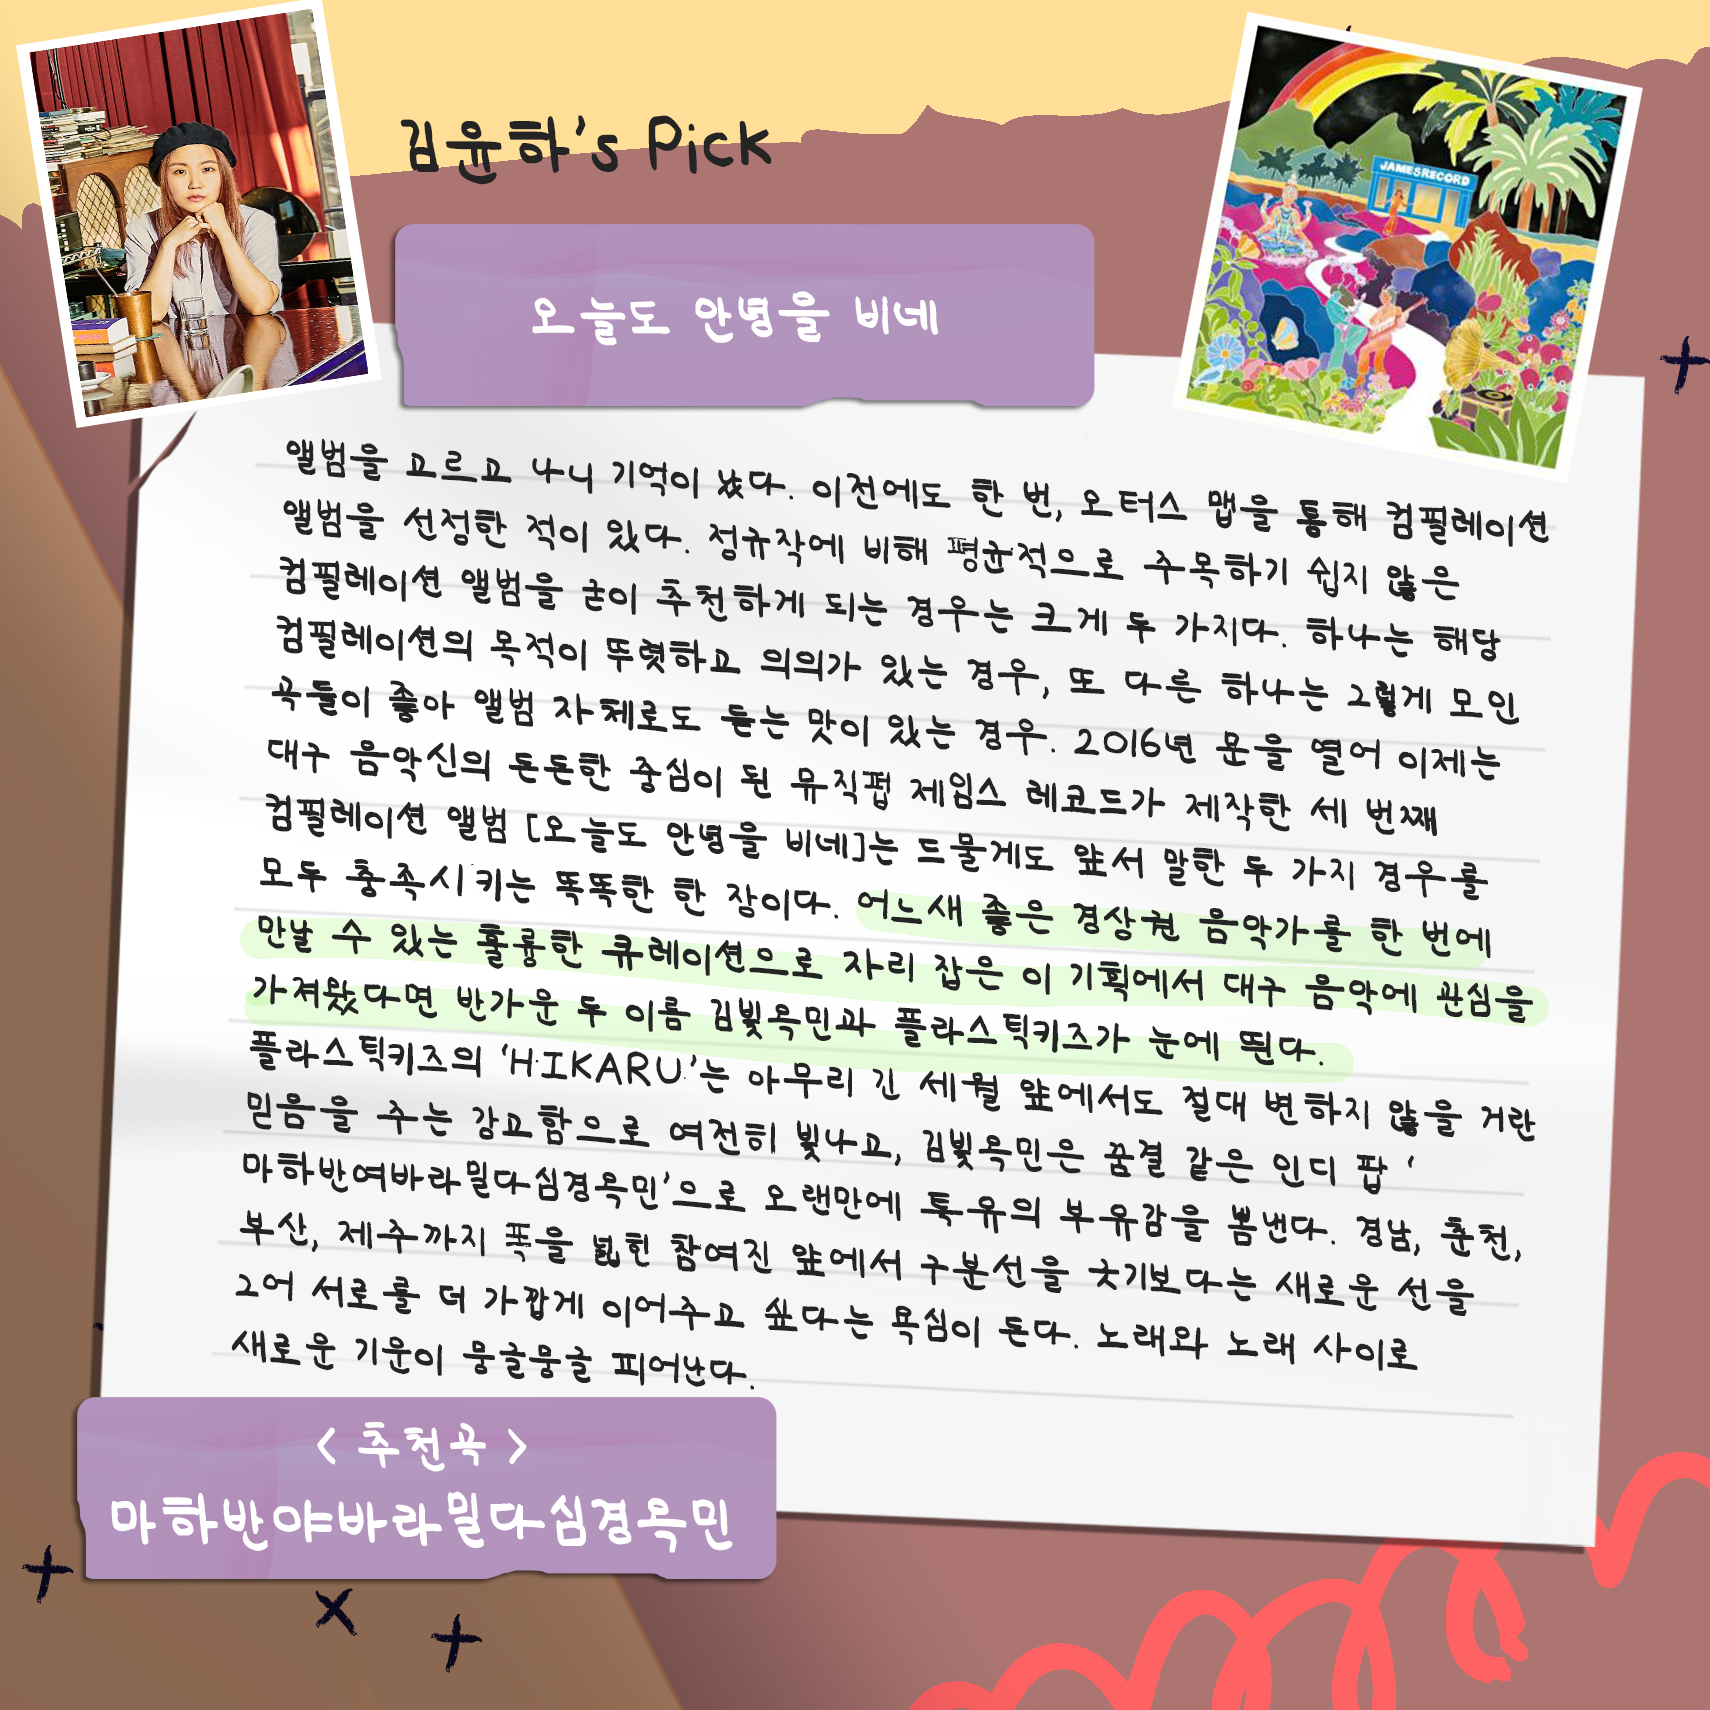 김윤하's Pick
JAMESRECORD
오늘도 안녕을 비네
앨범을 고르고 나니 기억이 났다. 이전에도 한 번, 오터스 맵을 통해 컴필레이션
앨범을 선정한 적이 있다. 정규작에 비해 평균적으로 주목하기 쉽지 않은
컴필레이션 앨범을 굳이 추천하게 되는 경우는 크게 두 가지다. 하나는 해당
컴필레이션의 목적이 뚜렷하고 의의가 있는 경우, 또 다른 하나는 그렇게 모인
곡들이 좋아 앨범 자체로도 듣는 맛이 있는 경우. 2016년 문을 열어 이제는
대구 음악신의 든든한 중심이 된 뮤직펍 제임스 레코드가 제작한 세 번째
컴필레이션 앨범 [오늘도 안녕을 비네]는 드물게도 앞서 말한 두 가지 경우를
모두 충족시키는 똑똑한 한 장이다. 어느새 좋은 경상권 음악가를 한 번에
만날 수 있는 훌륭한 큐레이션으로 자리 잡은 이 기획에서 대구 음악에 관심을
가져왔다면 반가운 두 이름 김빛옥민과 플라스틱키즈가 눈에 띈다.
플라스틱키즈의 'HIKARU'는 아무리 긴 세월 앞에서도 절대 변하지 않을 거란
믿음을 주는 강고함으로 여전히 빛나고, 김빛옥민은 꿈결 같은 인디 팝 '
마하반여바라밀다심경옥민'으로 오랜만에 특유의 부유감을 뽐낸다. 경남, 춘천,
부산, 제주까지 폭을 넓힌 참여진 앞에서 구분선을 긋기보다는 새로운 선을
그어 서로를 더 가깝게 이어주고 싶다는 욕심이 든다. 노래와 노래 사이로
새로운 기운이 뭉글뭉글 피어난다.
< 추천곡 >
마하반야바라밀다심경옥민